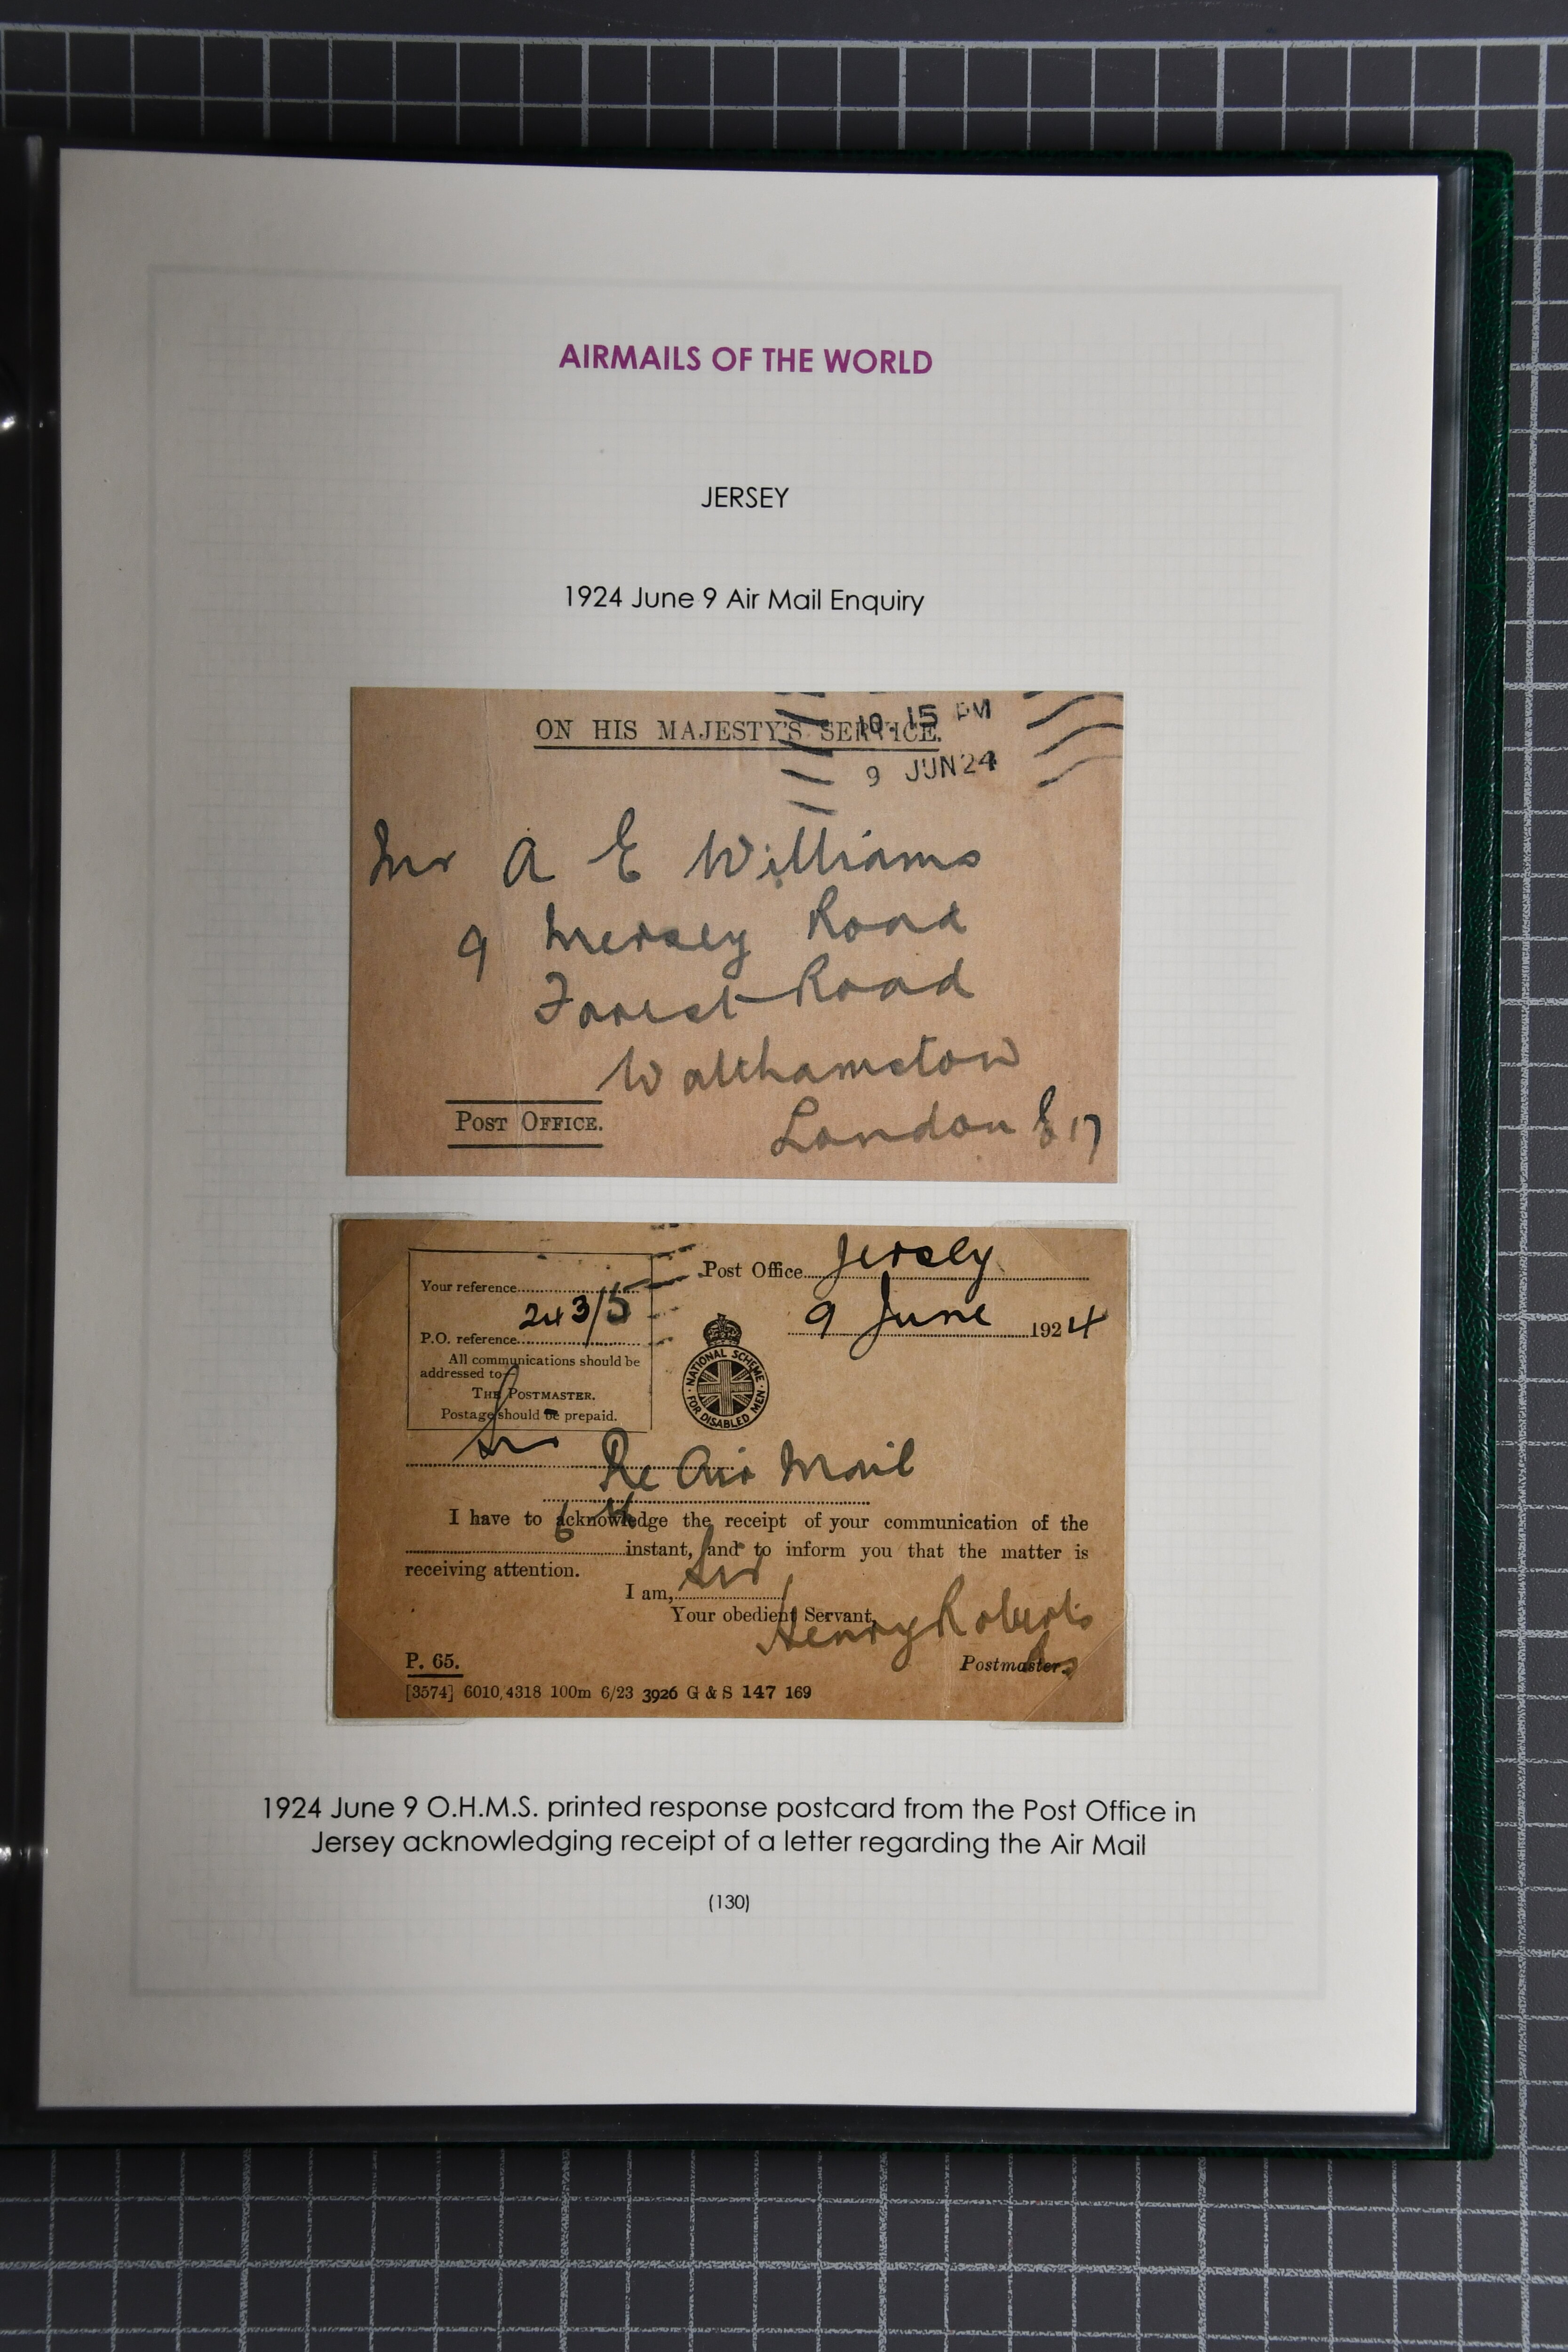 AIRMAILS OF THE WORLD
JERSEY
1924 June 9 Air Mail Enquiry
ON HIS MAJESTY'S SERVICE.
10. 15 PM
9 JUN 24
Mr A E Williams
9 Mersey Road
Forest Road
Walthamstow
London E 17
POST OFFICE.
Your reference
243/5
P.O. reference
All communications should be
addressed to—
THE POSTMASTER.
Postage should be prepaid.
Post Office Jersey
9 June 1924
NATIONAL SCHEME
FOR DISABLED MEN
Sir
Re Air Mail
I have to acknowledge the receipt of your communication of the
6th instant, and to inform you that the matter is
receiving attention.
I am, Sir
Your obedient Servant,
Henry Roberts
Postmaster.
P. 65.
[3574] 6010/4318 100m 6/23 3926 G & S 147 169
1924 June 9 O.H.M.S. printed response postcard from the Post Office in
Jersey acknowledging receipt of a letter regarding the Air Mail
(130)